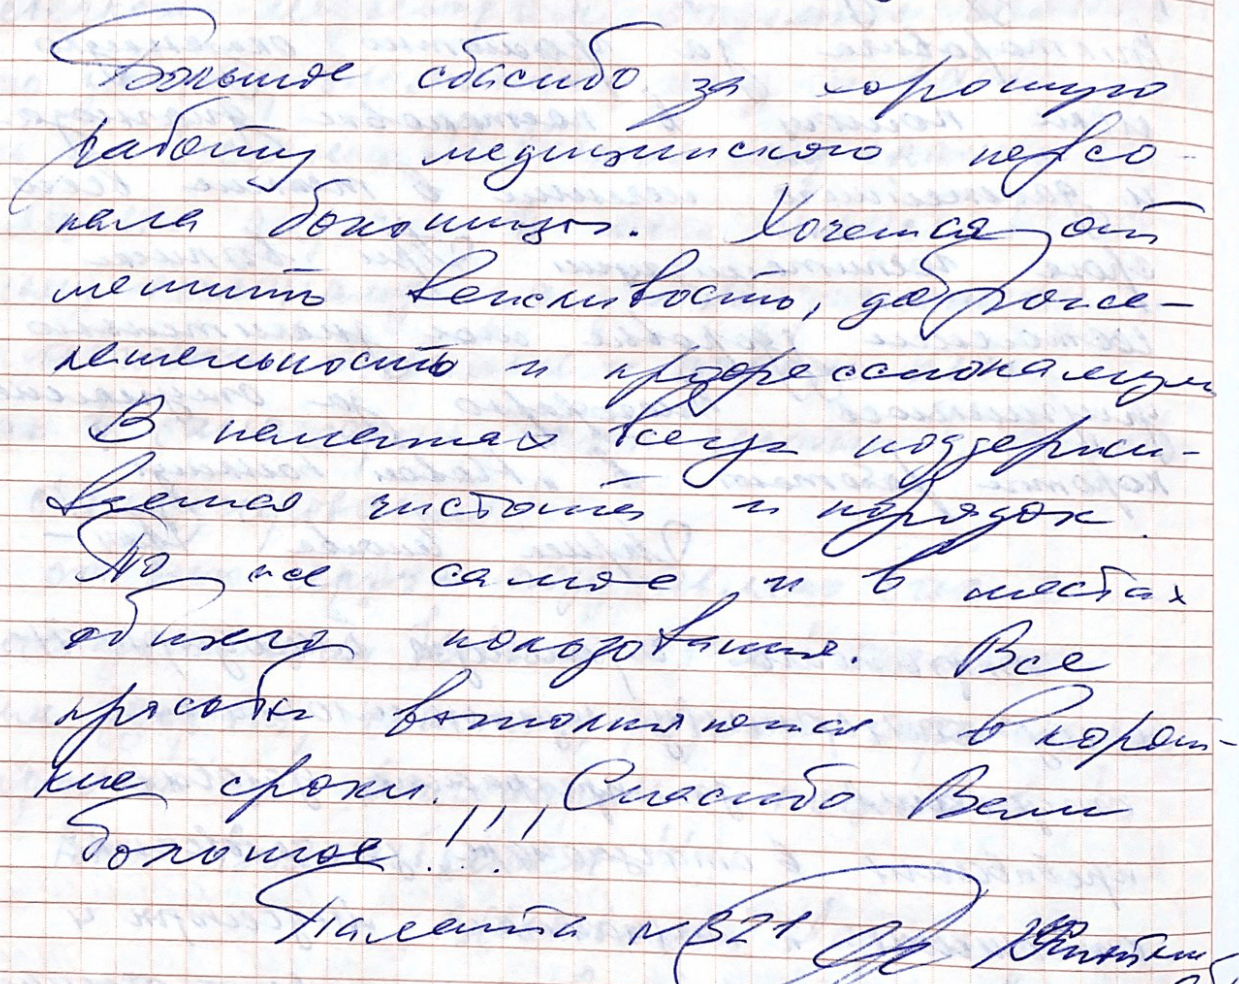 Большое спасибо за хорошую
работу медицинского персо-
нала больницы. Хочется от
метить вежливость, доброже-
лательность и профессионализм
В палатах всегда поддержи-
вается чистота и порядок.
То же самое и в местах
общего пользования. Все
просьбы выполняются в корот-
кие сроки. Спасибо Вам
большое!!!
Палата №321